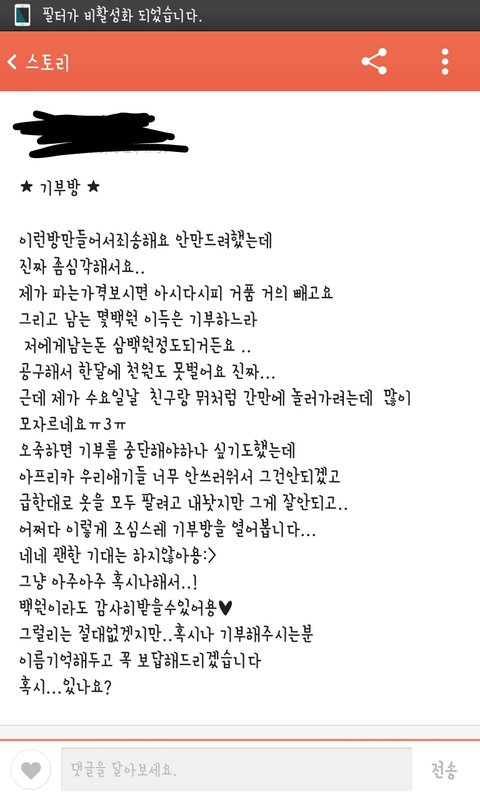 필터가 비활성화 되었습니다.
스토리
★ 기부방 ★
이런방만들어서죄송해요 안만드려했는데
진짜 좀심각해서요..
제가 파는가격보시면 아시다시피 거품 거의 빼고요
그리고 남는 몇백원 이득은 기부하느라
저에게남는돈 삼백원정도되거든요 ..
공구해서 한달에 천원도 못벌어요 진짜...
근데 제가 수요일날 친구랑 뮈처럼 간만에 놀러가려는데 많이
모자르네요ㅠ3ㅠ
오죽하면 기부를 중단해야하나 싶기도했는데
아프리카 우리애기들 너무 안쓰러워서 그건안되겠고
급한대로 옷을 모두 팔려고 내놧지만 그게 잘안되고..
어쩌다 이렇게 조심스레 기부방을 열어봅니다...
네네 괜한 기대는 하지않아용:>
그냥 아주아주 혹시나해서..!
백원이라도 감사히받을수있어용♥
그럴리는 절대없겟지만..혹시나 기부해주시는분
이름기억해두고 꼭 보답해드리겠습니다
혹시...있나요?
댓글을 달아보세요.
전송